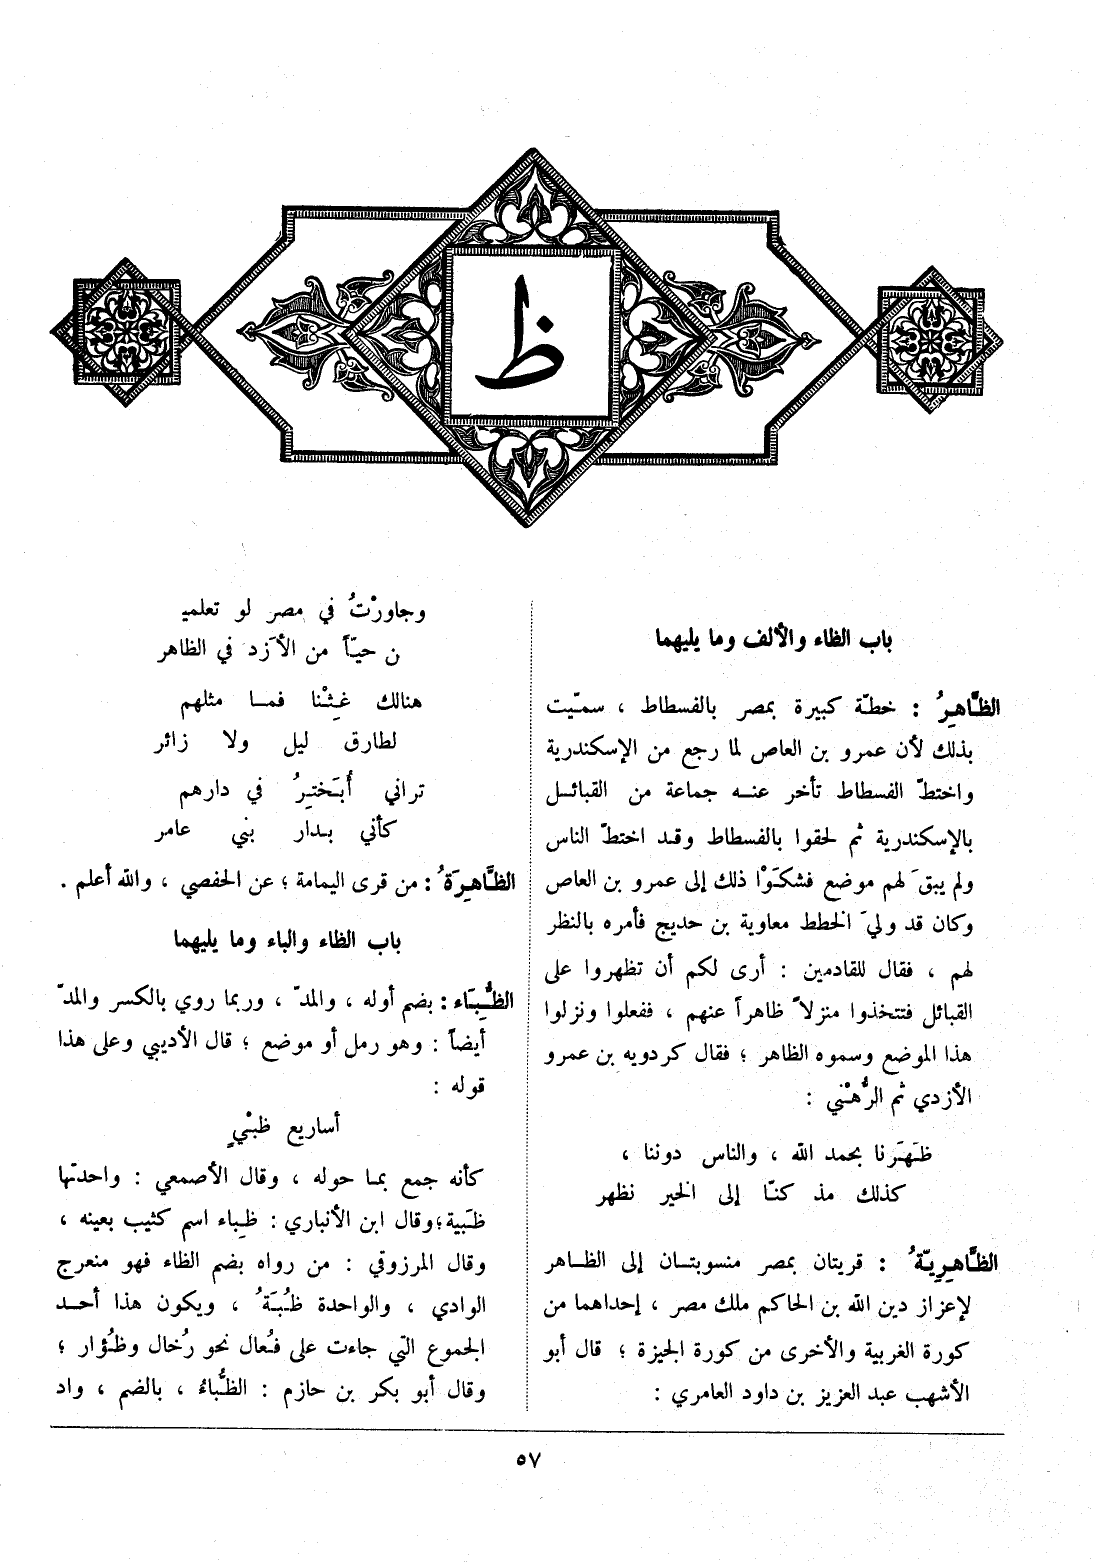 ظ
باب الظاء والألف وما يليهما
الظَّاهِرُ : خطّة كبيرة بمصر بالفسطاط ، سمّيت
بذلك لأن عمرو بن العاص لما رجع من الإسكندرية
واختطّ الفسطاط تأخر عنه جماعة من القبائل
بالإسكندرية ثم لحقوا بالفسطاط وقد اختطّ الناس
ولم يبقَ لهم موضع فشكَوْا ذلك إلى عمرو بن العاص
وكان قد وليَ الخطط معاوية بن حديج فأمره بالنظر
لهم ، فقال للقادمين : أرى لكم أن تظهروا على
القبائل فتتخذوا منزلاً ظاهراً عنهم ، ففعلوا ونزلوا
هذا الموضع وسموه الظاهر ؛ فقال كردويه بن عمرو
الأزدي ثم الرُّهْني :
ظَهَرنا بحمد الله ، والناس دوننا ،
كذلك مذ كنّا إلى الخير نظهر
الظَّاهِرِيّةُ : قريتان بمصر منسوبتان إلى الظاهر
لإعزاز دين الله بن الحاكم ملك مصر ، إحداهما من
كورة الغربية والأخرى من كورة الجيزة ؛ قال أبو
الأشهب عبد العزيز بن داود العامري :
وجاورْتُ في مصر لو تعلمي
ن حيّاً من الأزد في الظاهر
هنالك غِثْنا فما مثلهم
لطارق ليل ولا زائر
تراني أُبَختِرُ في دارهم
كأني بدار بني عامر
الظَّاهِرَةُ : من قرى اليمامة ؛ عن الحفصي ، والله أعلم .
باب الظاء والباء وما يليهما
الظُّبَاء : بضم أوله ، والمدّ ، وربما روي بالكسر والمدّ
أيضاً : وهو رمل أو موضع ؛ قال الأديبي وعلى هذا
قوله :
أساريع ظبْيٍ
كأنه جمع بما حوله ، وقال الأصمعي : واحدتها
ظَبية ؛ وقال ابن الأنباري : ظِباء اسم كثيب بعينه ،
وقال المرزوقي : من رواه بضم الظاء فهو منعرج
الوادي ، والواحدة ظُبَةُ ، ويكون هذا أحد
الجموع التي جاءت على فُعال نحو رُخال وظُؤار ؛
وقال أبو بكر بن حازم : الظُّباءُ ، بالضم ، واد
٥٧